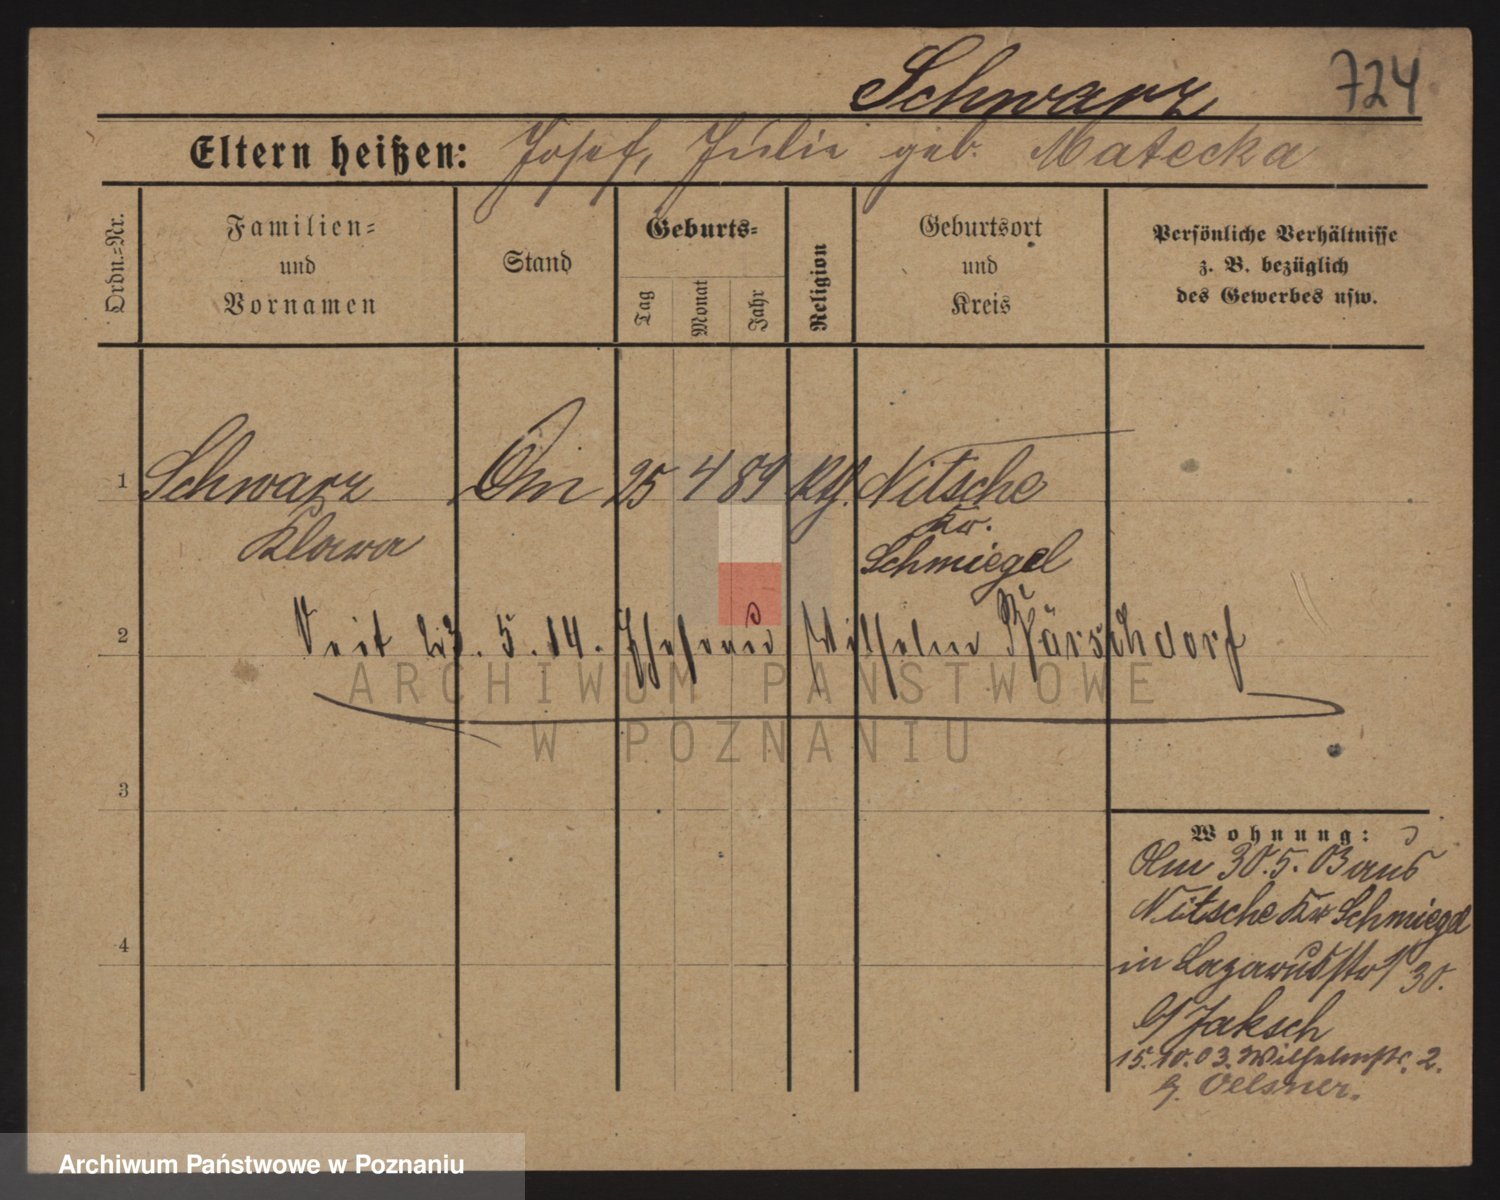 Schwarz 724
Eltern heißen: Josef, Julie geb. Matecka
Ordn.=Nr.
Familien=
und
Vornamen
Stand
Geburts=
Tag
Monat
Jahr
Religion
Geburtsort
und
Kreis
Persönliche Verhältnisse
z. B. bezüglich
des Gewerbes usw.
1 Schwarz 25 4 89 Nitsche
Klara Kr.
Schmiegel
2 Seit 23. 5. 14. Ehefrau Wilhelm Bärschdorf
ARCHIWUM PAŃSTWOWE
W POZNANIU
3
4
Wohnung:
Am 30. 5. 03 aus
Nitsche Kr Schmiegel
in Lazarusstr 30.
b/ Jaksch
15. 10. 03. Wilhelmstr. 2.
b. Oelsner.
Archiwum Państwowe w Poznaniu